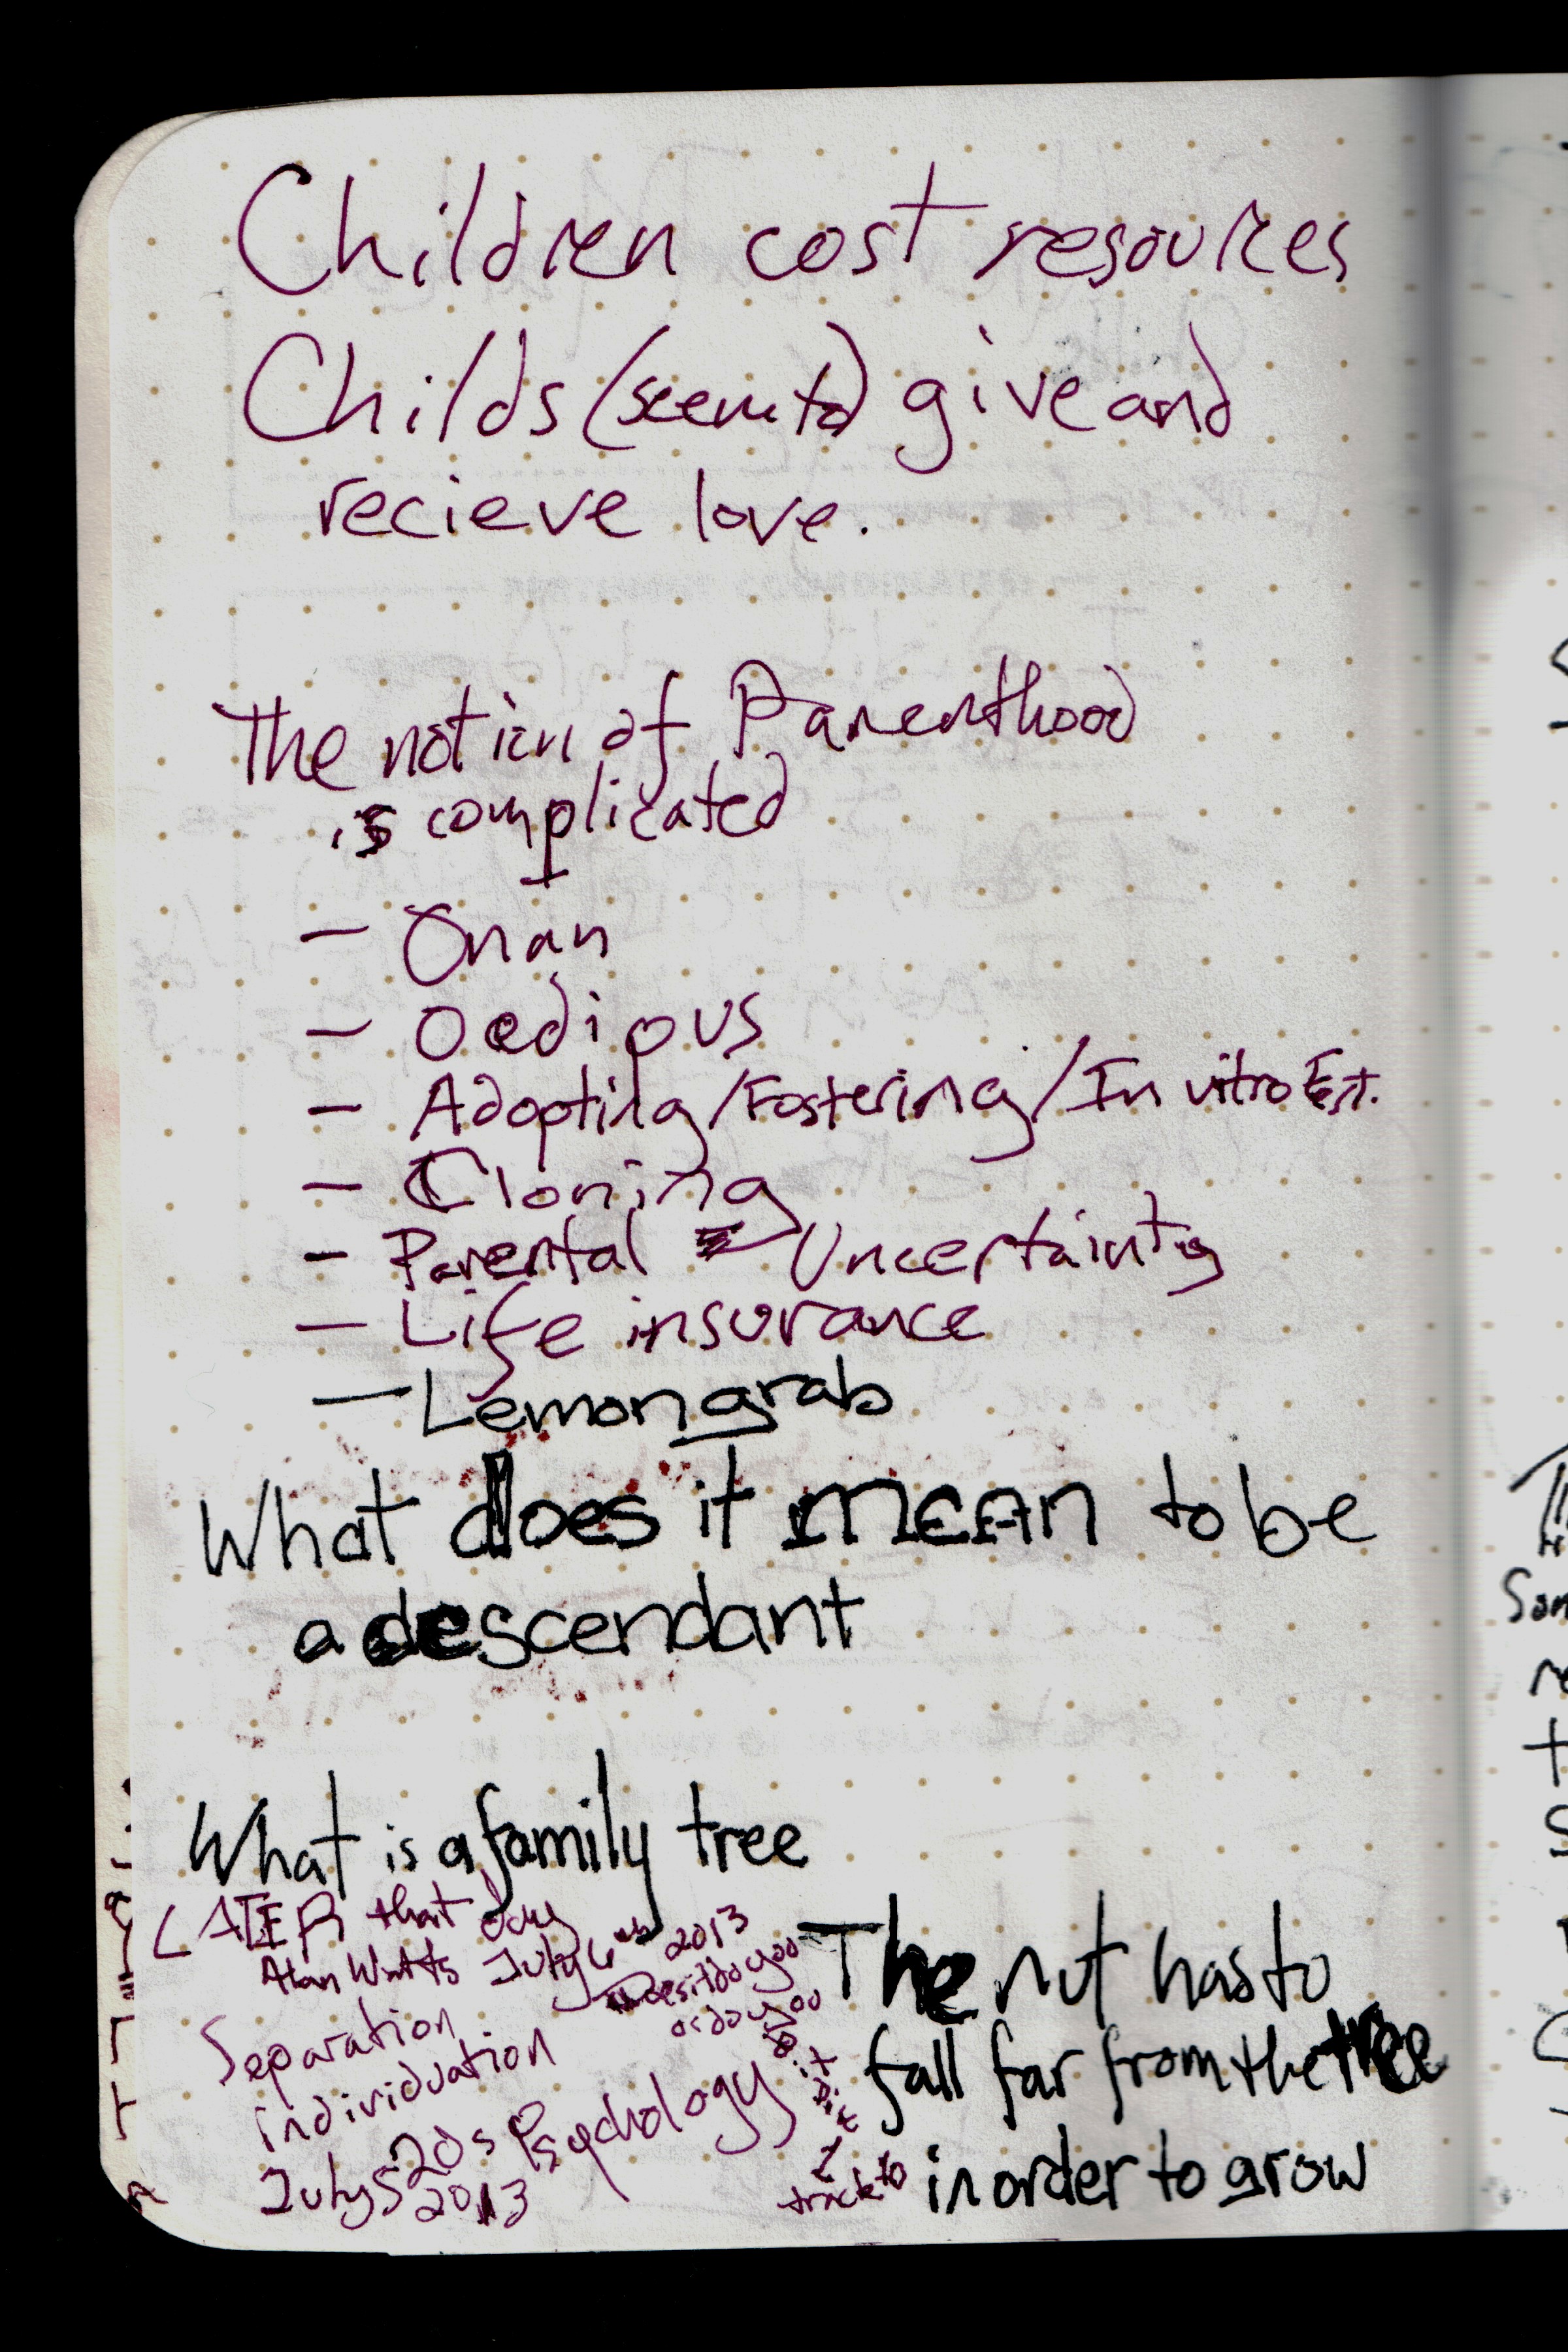 Children cost resources
Childs (seem to) give and
recieve love.
The notion of Parenthood
is complicated
- Onan
- Oedipus
- Adopting/Fostering/In vitro Fert.
- Cloning
- Parental Uncertainty
- Life insurance
- Lemongrab
What does it mean to be
a descendant
What is a family tree
LATER that day
Alan Watts July 6th 2013
Does it do you
or do you
do it
Separation
individuation
20s Psychology
July 5
2013
track to
The nut has to
fall far from the tree
in order to grow
Som